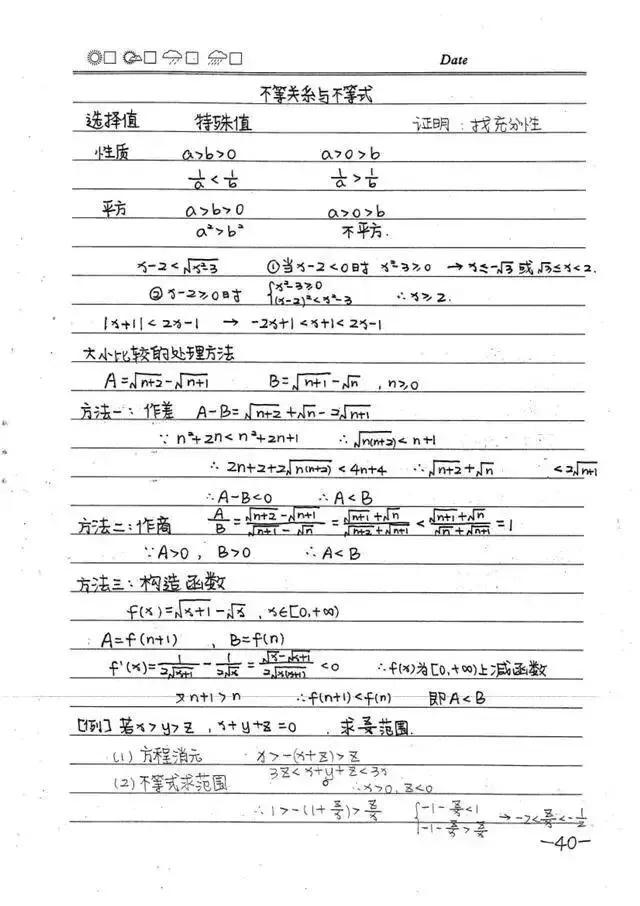 Date
不等关系与不等式
选择值 特殊值 证明：找充分性
性质 a>b>0 a>0>b
1/a < 1/b 1/a > 1/b
平方 a>b>0 a>0>b
a²>b² 不平方.
x-2<√(x²-3) ①当x-2<0时 x²-3≥0 → x≤-√3 或 √3≤x<2.
②x-2≥0时 {x²-3≥0 (x-2)²<x²-3 ∴x≥2.
|x+1|<2x-1 → -2x+1<x+1<2x-1
大小比较的处理方法
A=√(n+2)-√(n+1) B=√(n+1)-√n , n≥0
方法一：作差 A-B=√(n+2)+√n-2√(n+1)
∵ n²+2n<n²+2n+1 ∴√(n(n+2))<n+1
∴ 2n+2+2√(n(n+2))<4n+4 ∴√(n+2)+√n <2√(n+1)
∴A-B<0 ∴A<B
方法二：作商 A/B=(√(n+2)-√(n+1))/(√(n+1)-√n)=(√(n+1)+√n)/(√(n+2)+√(n+1))<(√(n+1)+√n)/(√n+√(n+1))=1
∵A>0, B>0 ∴A<B
方法三：构造函数
f(x)=√(x+1)-√x , x∈[0,+∞)
A=f(n+1) , B=f(n)
f'(x)=1/(2√(x+1))-1/(2√x)=(√x-√(x+1))/(2√(x(x+1)))<0 ∴f(x)为[0,+∞)上减函数
又n+1>n ∴f(n+1)<f(n) 即A<B
[例]若x>y>z , x+y+z=0 . 求z/x范围.
(1) 方程消元 x>-(x+z)>z
3z<x+y+z<3x
(2)不等式求范围 ∴x>0, z<0
∴1>-(1+z/x)>z/x {-1-z/x<1 -1-z/x>z/x → -2<z/x<-1/2
-40-